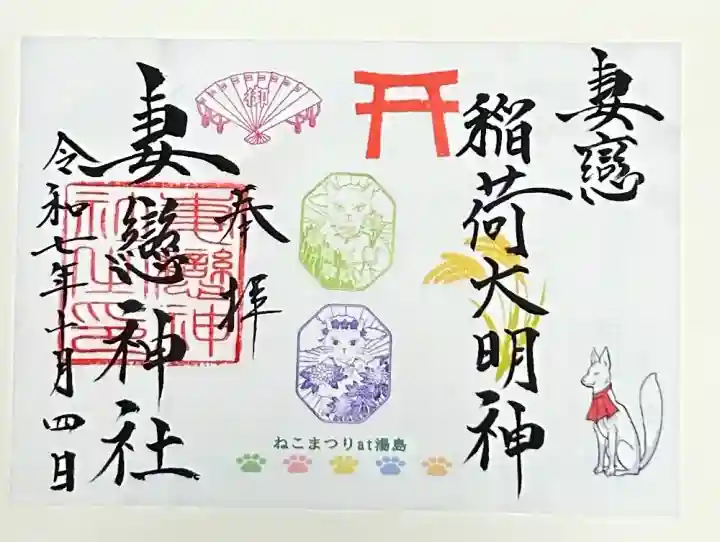 妻戀
稲荷大明神
奉拝
妻戀神社
令和七年十月四日
妻戀神社之印
御
ねこまつりat湯島